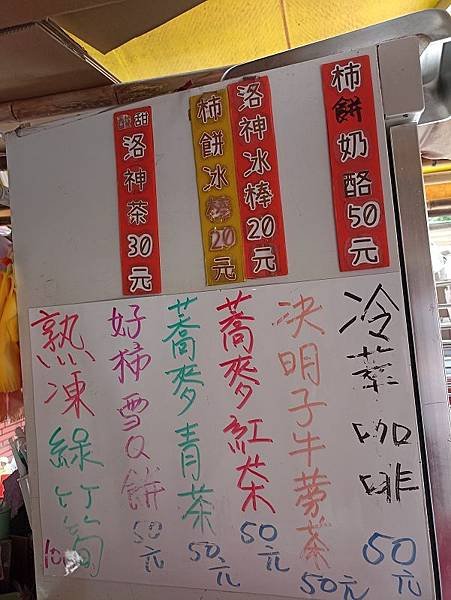 柿餅奶酪50元
洛神冰棒20元
柿餅冰棒20元
酸甜洛神茶30元
冷萃咖啡50元
決明子牛蒡茶50元
蕎麥紅茶50元
蕎麥青茶50元
好柿雪Q餅50元
熟凍綠竹筍100